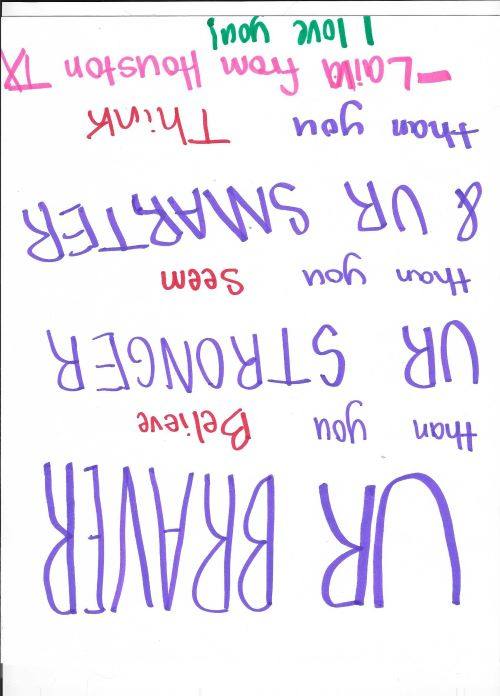 UR BRAVER
than you Believe
UR STRONGER
than you Seem
& UR SMARTER
than you Think
-Laila from Houston TX
I love you!